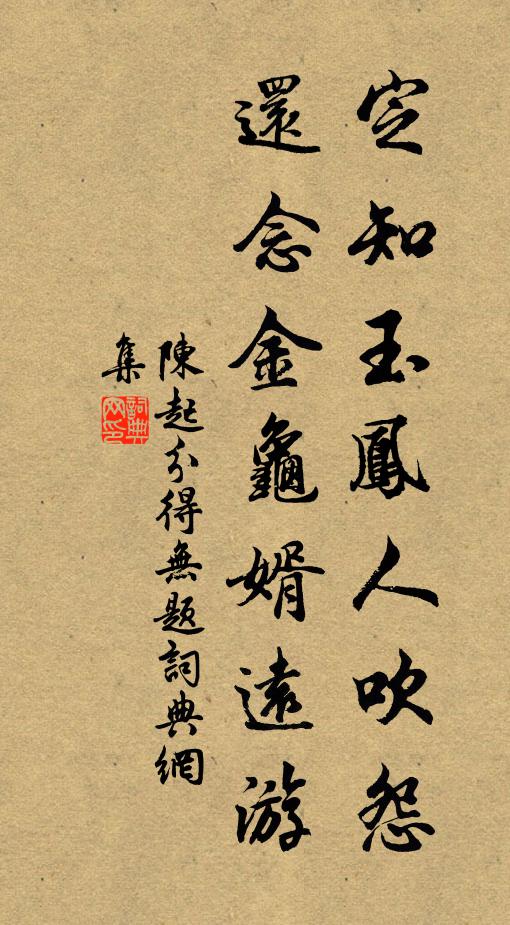 定知玉鳳人吹怨
還念金龜婿遠游
陳起分得無題詞典網
集
詞典網印